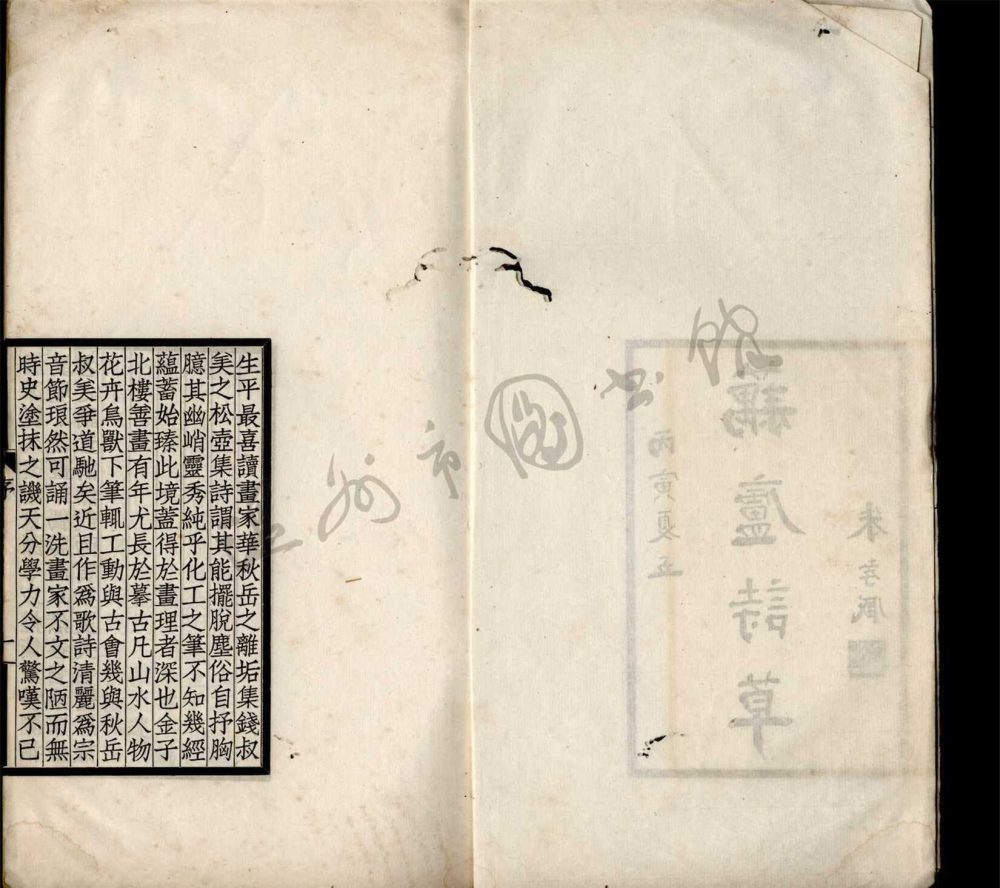 丙寅夏五
藕廬詩草
朱孝臧
州市圖书館
生平最喜讀畫家華秋岳之離垢集錢叔
羙之松壺集詩謂其能擺脫塵俗自抒胸
臆其幽峭靈秀純乎化工之筆不知幾經
蘊蓄始臻此境蓋得於畫理者深也金子
北樓善畫有年尤長於摹古凡山水人物
花卉鳥獸下筆輒工動與古會幾與秋岳
叔羙爭道馳矣近且作爲歌詩清麗爲宗
音節琅然可誦一洗畫家不文之陋而無
時史塗抹之譏天分學力令人驚嘆不已
序
一